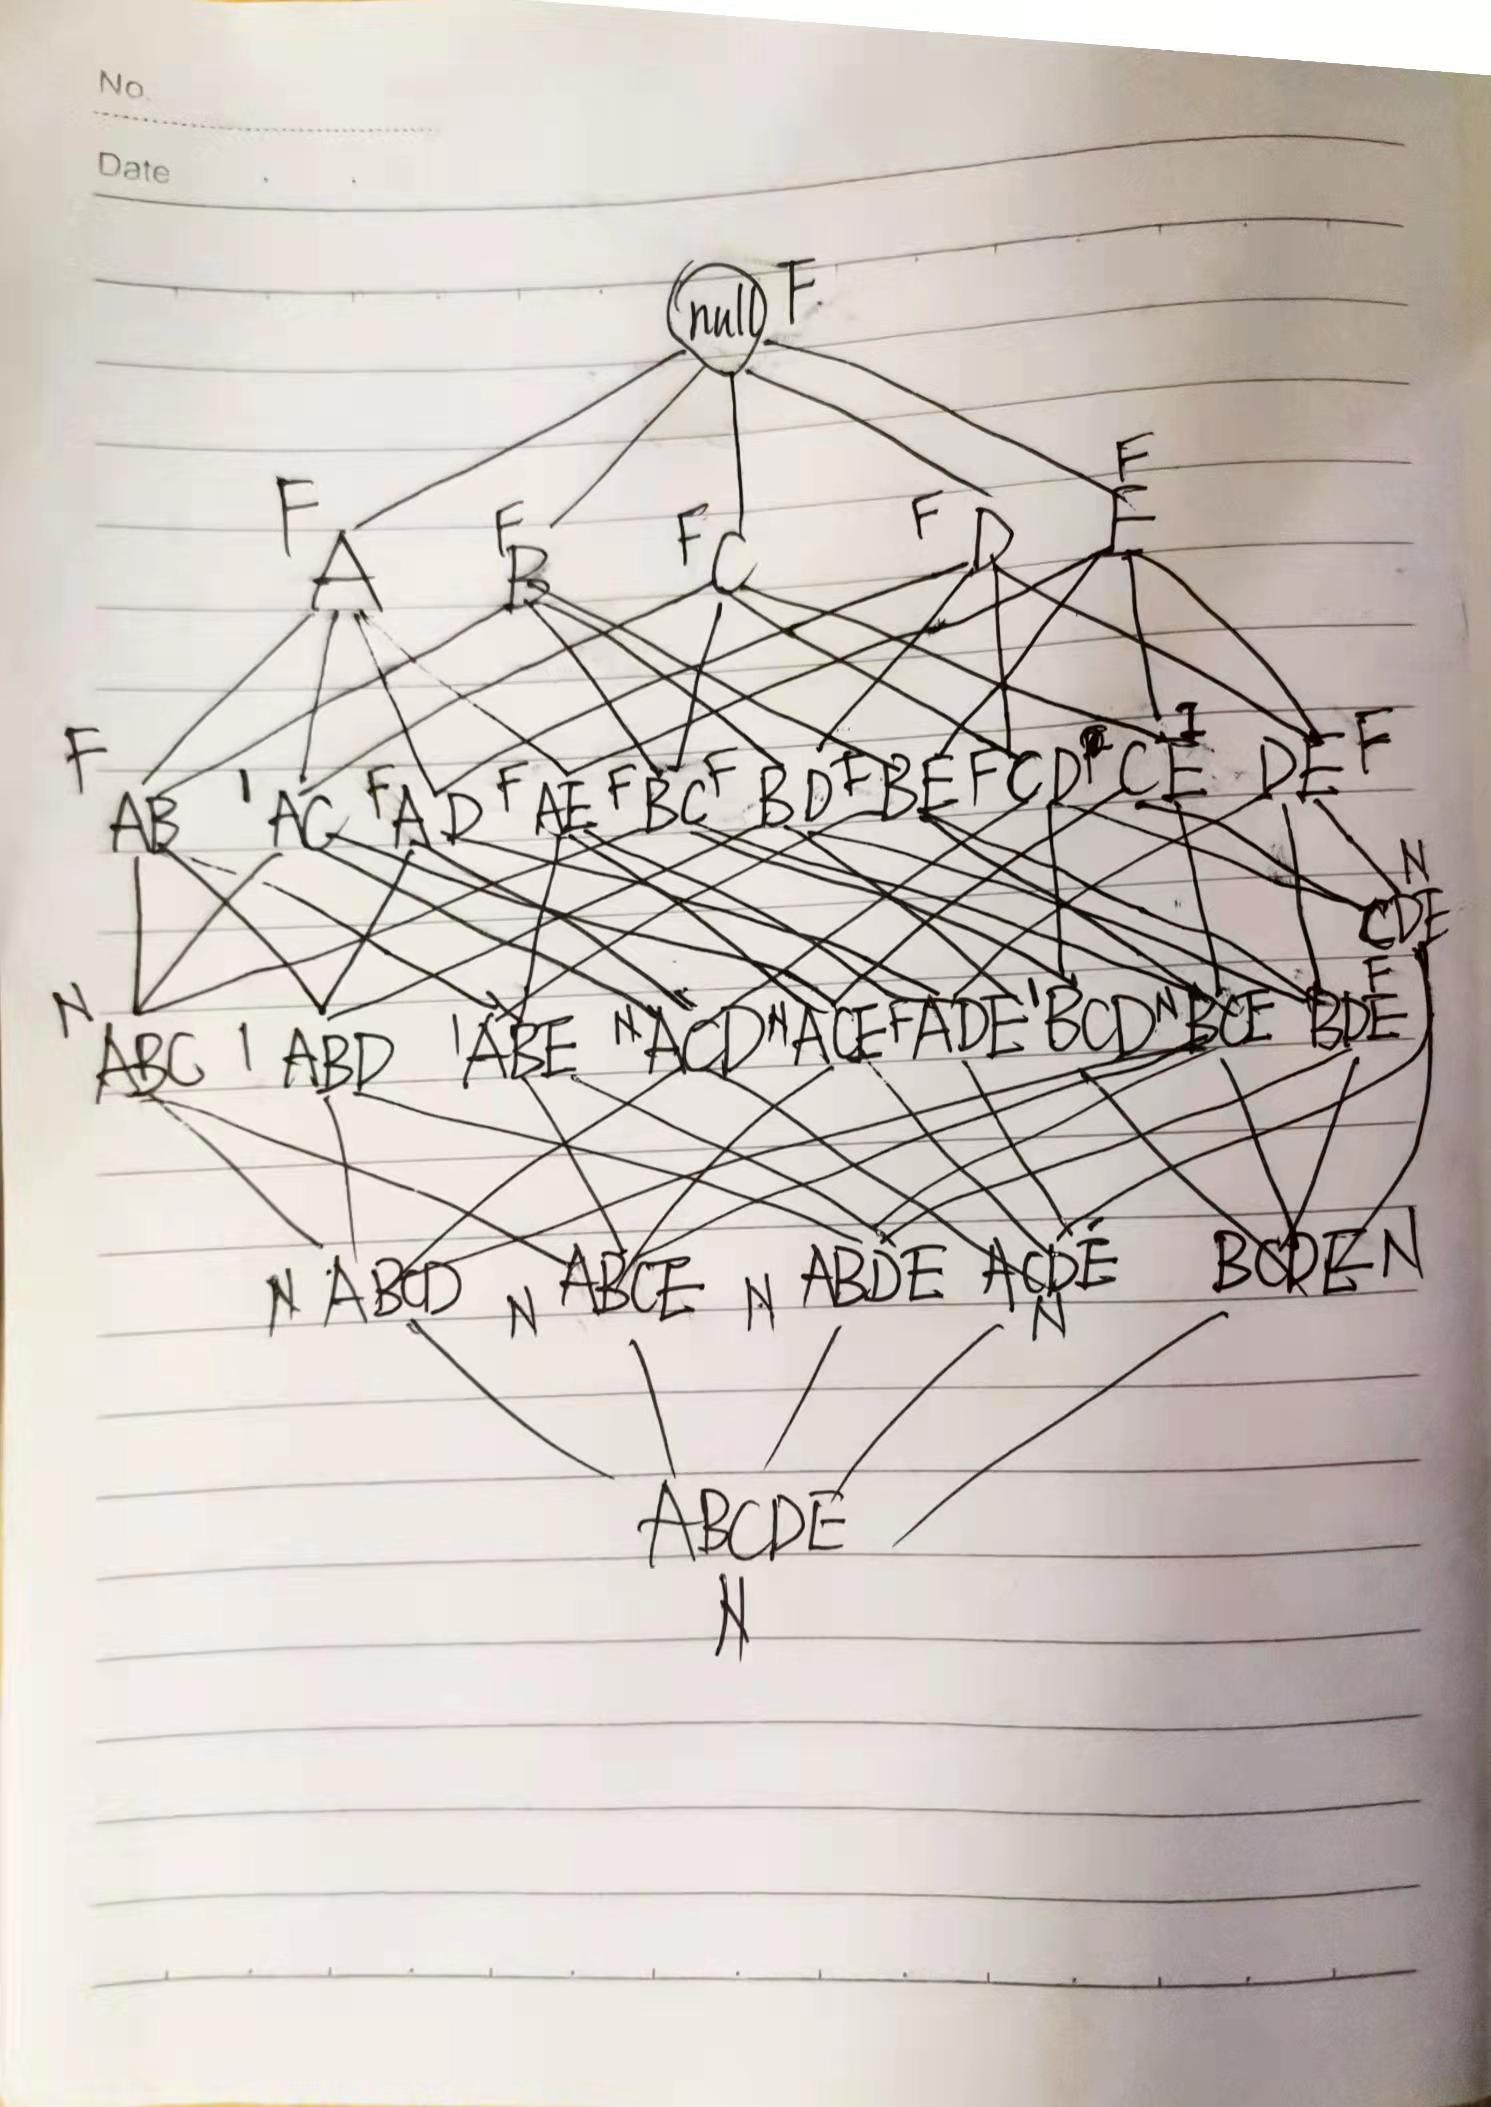 No.
Date
null F
F A F B F C F D F E
F AB I AC F AD F AE F BC F BD F BE F CD CE I DE F
N CDE
N ABC I ABD I ABE N ACD N ACE F ADE I BCD N BCE F BDE
N ABCD N ABCE N ABDE ACDE N BCDE N
ABCDE
N